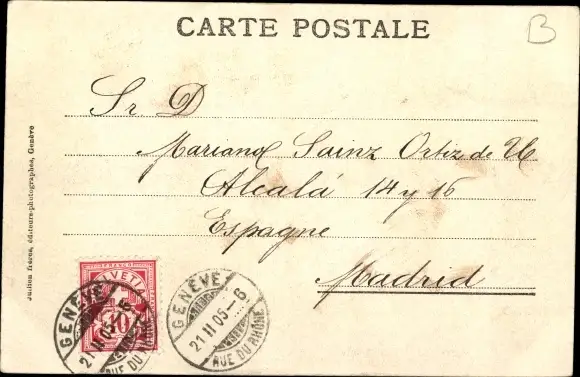 CARTE POSTALE
B
Sr D
Mariano Sainz Ortiz de U
Alcalá 14 y 16
Espagne
Madrid
Jullien frères, éditeurs-photographes, Genève
FRANCO
HELVETIA
10
GENÈVE
21 II 05-6
RUE DU RHÔNE
GENÈVE
21 II 05-6
RUE DU RHÔNE